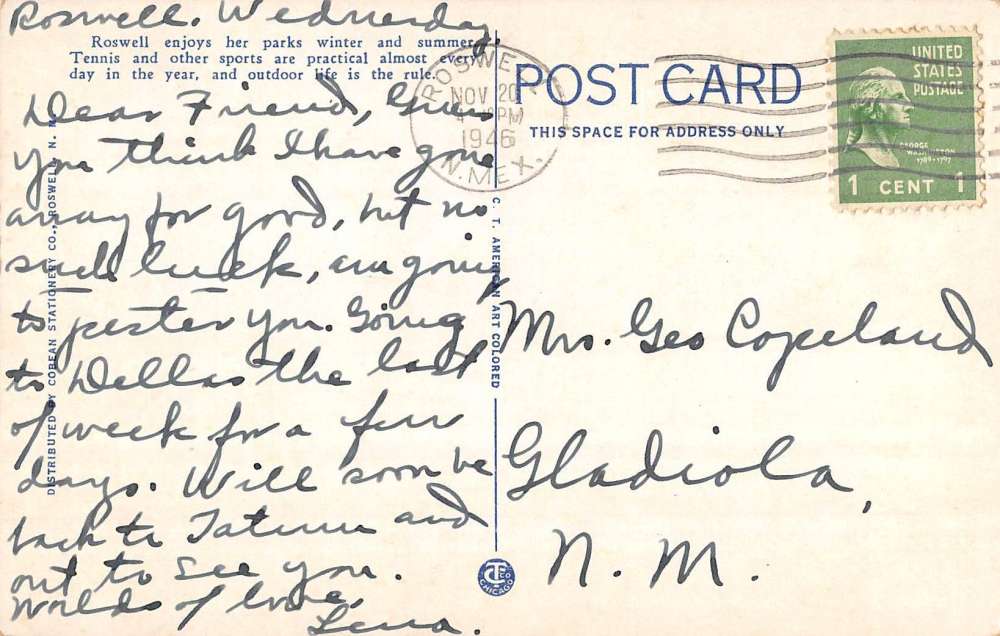 Roswell. Wednesday.
Roswell enjoys her parks winter and summer.
Tennis and other sports are practical almost every
day in the year, and outdoor life is the rule.
Dear Friend, Guess
you think I have gone
away for good, but no
such luck, am going
to pester you. Going
to Dallas the last
of week for a few
days. Will soon be
back to Tatum and
out to see you.
Worlds of love,
Lena.
DISTRIBUTED BY COBEAN STATIONERY CO., ROSWELL, N. M.
C. T. AMERICAN ART COLORED
POST CARD
THIS SPACE FOR ADDRESS ONLY
ROSWELL
NOV 20
PM
1946
N. MEX.
UNITED
STATES
POSTAGE
GEORGE
WASHINGTON
1789-1797
1 CENT 1
Mrs. Geo Copeland
Gladiola,
N. M.
CT CO
CHICAGO